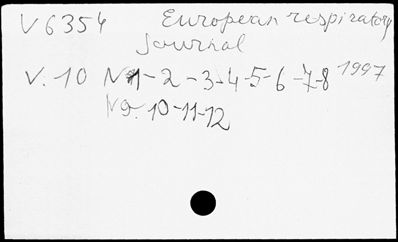 V 6354 European respiratory
Journal
V. 10 N1-2-3-4-5-6-7-8 1997
N9-10-11-12